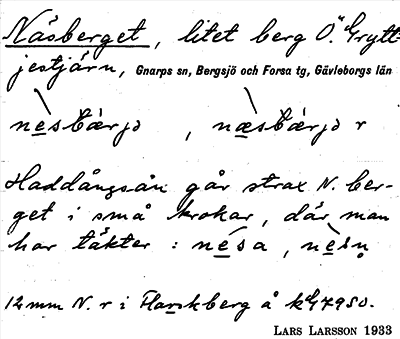 Näsberget, litet berg Ö. Grytt-
jestjärn, Gnarps sn, Bergsjö och Forsa tg, Gävleborgs län
nèsbærjə, næsbærjə r
Haddångsån går strax N. ber-
get i små krokar, där man
har täkter: nésa, nèsn̥
12 mm N. r i Harskberg å
LARS LARSSON 1933